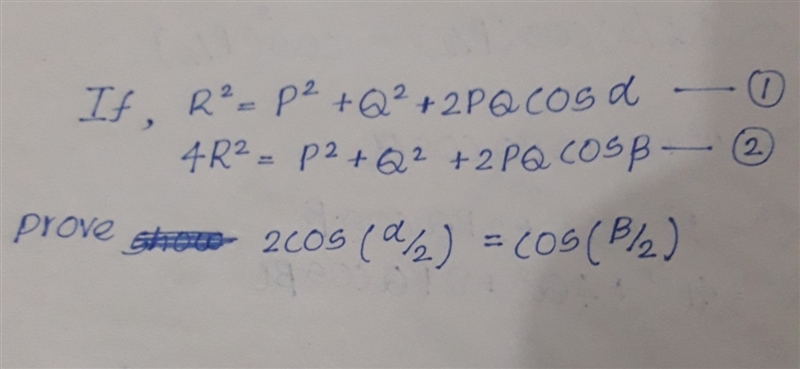 If, R² = P² + Q² + 2PQ COS α — ①
4R² = P² + Q² + 2PQ COS β — ②
prove show 2COS (α/2) = COS (β/2)